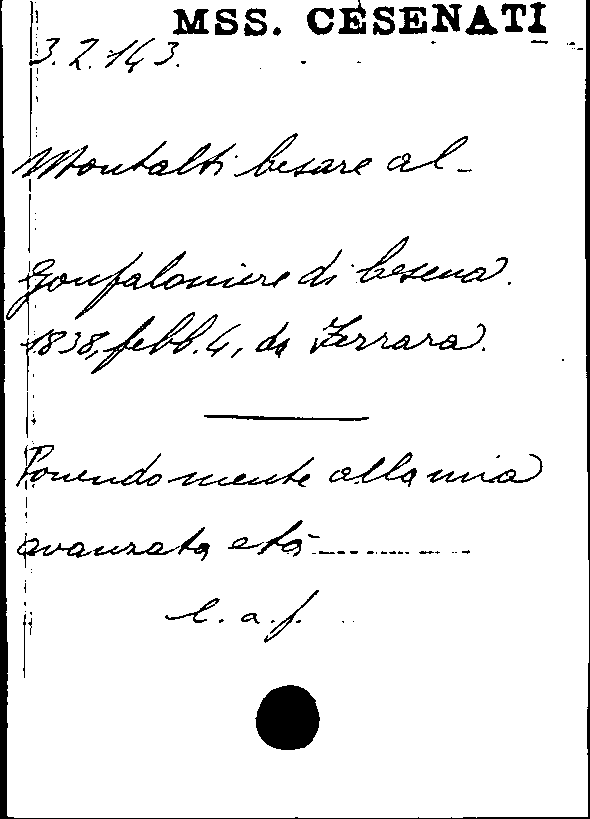 MSS. CESENATI
3.2.143.
Montalti Cesare al
Gonfaloniere di Cesena.
1838, febb. 4, da Ferrara.
Ponendo mente alla mia
avanzata età...........
l. a. f.